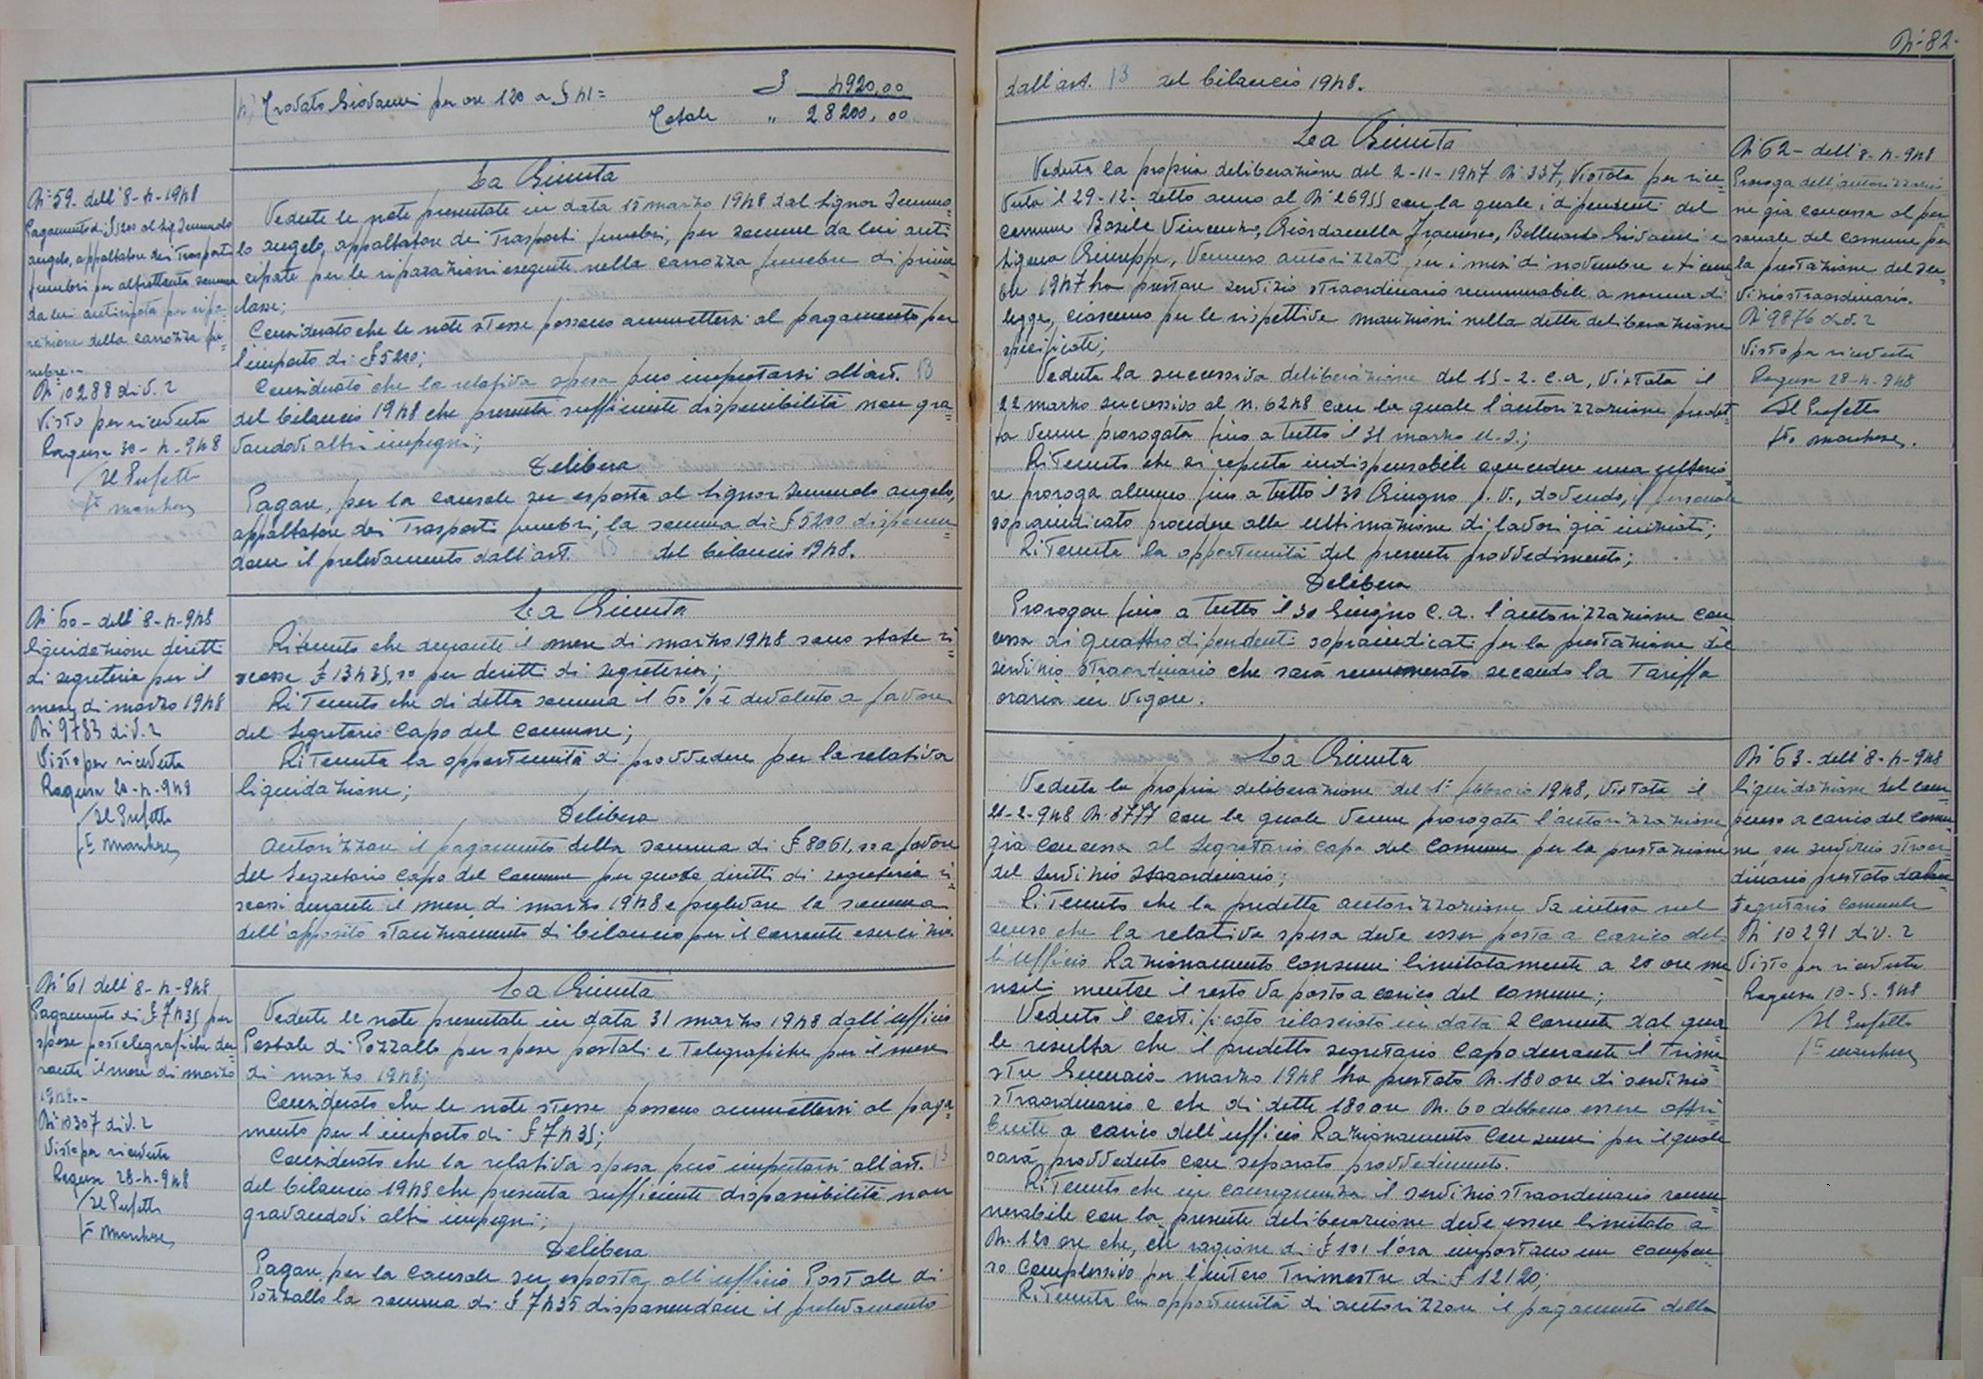 4) Trovato Giovanni per ore 120 a £ 41= £ 4920,00
Totale " 28200,00
N° 59. dell'8-4-1948
Pagamento di £ 5200 al Sig.
Angelo, appaltatore dei Trasporti
funebri per altrettanta somma
da lui anticipata per ripa=
razione della carrozza fu=
nebre.-
N° 10288 div. 2
Visto per ricevuta
Ragusa 30-4-948
Il Prefetto
Fto
La Giunta
Vedute le note presentate in data 15 marzo 1948 dal Signor
Angelo, appaltatore dei Trasporti funebri, per somme da lui anti=
cipate per le riparazioni eseguite nella carrozza funebre di prima
classe;
Considerato che le note stesse possono ammettersi al pagamento per
l'importo di £ 5200;
Considerato che la relativa spesa può imputarsi all'art. 13
del bilancio 1948 che presenta sufficiente disponibilità non gra=
vandovi altri impegni;
Delibera
Pagare, per la causale su esposta al Signor Angelo,
appaltatore dei Trasporti funebri, la somma di £ 5200 disponen=
done il prelevamento dall'art. 13 del bilancio 1948.
N° 60 - dell'8-4-948
liquidazione diritti
di segreteria per il
mese di marzo 1948
N° 9783 div. 2
Visto per ricevuta
Ragusa 20-4-948
Il Prefetto
Fto
La Giunta
Ritenuto che durante il mese di marzo 1948 sono state ri=
scosse £ 13435,00 per diritti di segreteria;
Ritenuto che di detta somma il 60% è devoluto a favore
del Segretario Capo del Comune;
Ritenuta la opportunità di provvedere per la relativa
liquidazione;
Delibera
Autorizzare il pagamento della somma di £ 8061,00 a favore
del Segretario Capo del Comune per quota diritti di segreteria ri=
scossi durante il mese di marzo 1948 e prelevare la somma
dell'apposito stanziamento di bilancio per il corrente esercizio.
N° 61 dell'8-4-948
Pagamento di £ 7435 per
spese postelegrafiche du=
rante il mese di marzo
1948.-
N° 10307 div. 2
Visto per ricevuta
Ragusa 28-4-948
Il Prefetto
Fto
La Giunta
Vedute le note presentate in data 31 marzo 1948 dall'ufficio
Postale di Pozzallo per spese postali e Telegrafiche per il mese
di marzo 1948;
Considerato che le note stesse possono ammettersi al paga=
mento per l'importo di £ 7435;
Considerato che la relativa spesa può imputarsi all'art. 13
del bilancio 1948 che presenta sufficiente disponibilità non
gravandovi altri impegni;
Delibera
Pagare, per la causale su esposta, all'ufficio Postale di
Pozzallo la somma di £ 7435 disponendone il prelevamento
N° 82.
dall'art. 13 del bilancio 1948.
La Giunta
Veduta la propria deliberazione del 2-11-1947 N° 337, Vistata per rice=
vuta il 29-12- detto anno al N° 26955 con la quale i dipendenti del
comune Basile Vincenzo, Giordanella Francesco, Belluardo Giovanni e
Sigona Giuseppe, Vennero autorizzati per i mesi di novembre e dicem=
bre 1947 a prestare servizio straordinario remunerabile a norma di
legge, ciascuno per le rispettive mansioni nella detta deliberazione
specificate;
Veduta la successiva deliberazione del 15-2-c.a, Vistata il
22 marzo successivo al N. 6248 con la quale l'autorizzazione predet=
ta venne prorogata fino a tutto il 31 marzo
Ritenuto che si reputa indispensabile concedere una ulterio=
re proroga almeno fino a tutto il 30 Giugno p.v., dovendo, il personale
sopraindicato procedere alla ultimazione di lavori già iniziati;
Ritenuta la opportunità del presente provvedimento;
Delibera
Prorogare fino a tutto il 30 Giugno c.a. l'autorizzazione con
cessa ai quattro dipendenti sopraindicati per la prestazione del
servizio straordinario che sarà remunerato secondo la Tariffa
oraria in vigore.
N° 62 - dell'8-4-948
Proroga dell'autorizzazio=
ne già concessa al per
sonale del comune per
la prestazione del ser
vizio straordinario.
N° 9876 div. 2
Visto per ricevuta
Ragusa 28-4-948
Il Prefetto
Fto
La Giunta
Veduta la propria deliberazione del 1° febbraio 1948, Vistata il
N. 3777 con la quale venne prorogata l'autorizzazione
già concessa al Segretario Capo del Comune per la prestazione
del servizio straordinario;
Ritenuto che la predetta autorizzazione va intesa nel
senso che la relativa spesa deve essere posta a carico del=
l'ufficio Razionamento Consumi limitatamente a 20 ore me
nsili mentre il resto va posto a carico del comune;
Veduto il certificato rilasciato in data 2 corrente dal qua
le risulta che il predetto segretario Capo durante il trime
stre Gennaio - marzo 1948 ha prestato N. 180 ore di servizio
straordinario e che di dette 180 ore N. 60 debbono essere attri
buite a carico dell'ufficio Razionamento Consumi per il quale
sarà provveduto con separato provvedimento.
Ritenuto che in conseguenza il servizio straordinario remu=
nerabile con la presente deliberazione deve essere limitato a
N. 120 ore che, in ragione di £ 101 l'ora importano un compen=
so complessivo per l'intero Trimestre di £ 12120;
Ritenuta la opportunità di autorizzare il pagamento della
N° 63 - dell'8-4-948
liquidazione del com=
penso a carico del comu
ne, su servizio straor=
dinario prestato dal
Segretario Comunale
N° 10291 div. 2
Visto per ricevuta
Ragusa 10-5-948
Il Prefetto
Fto